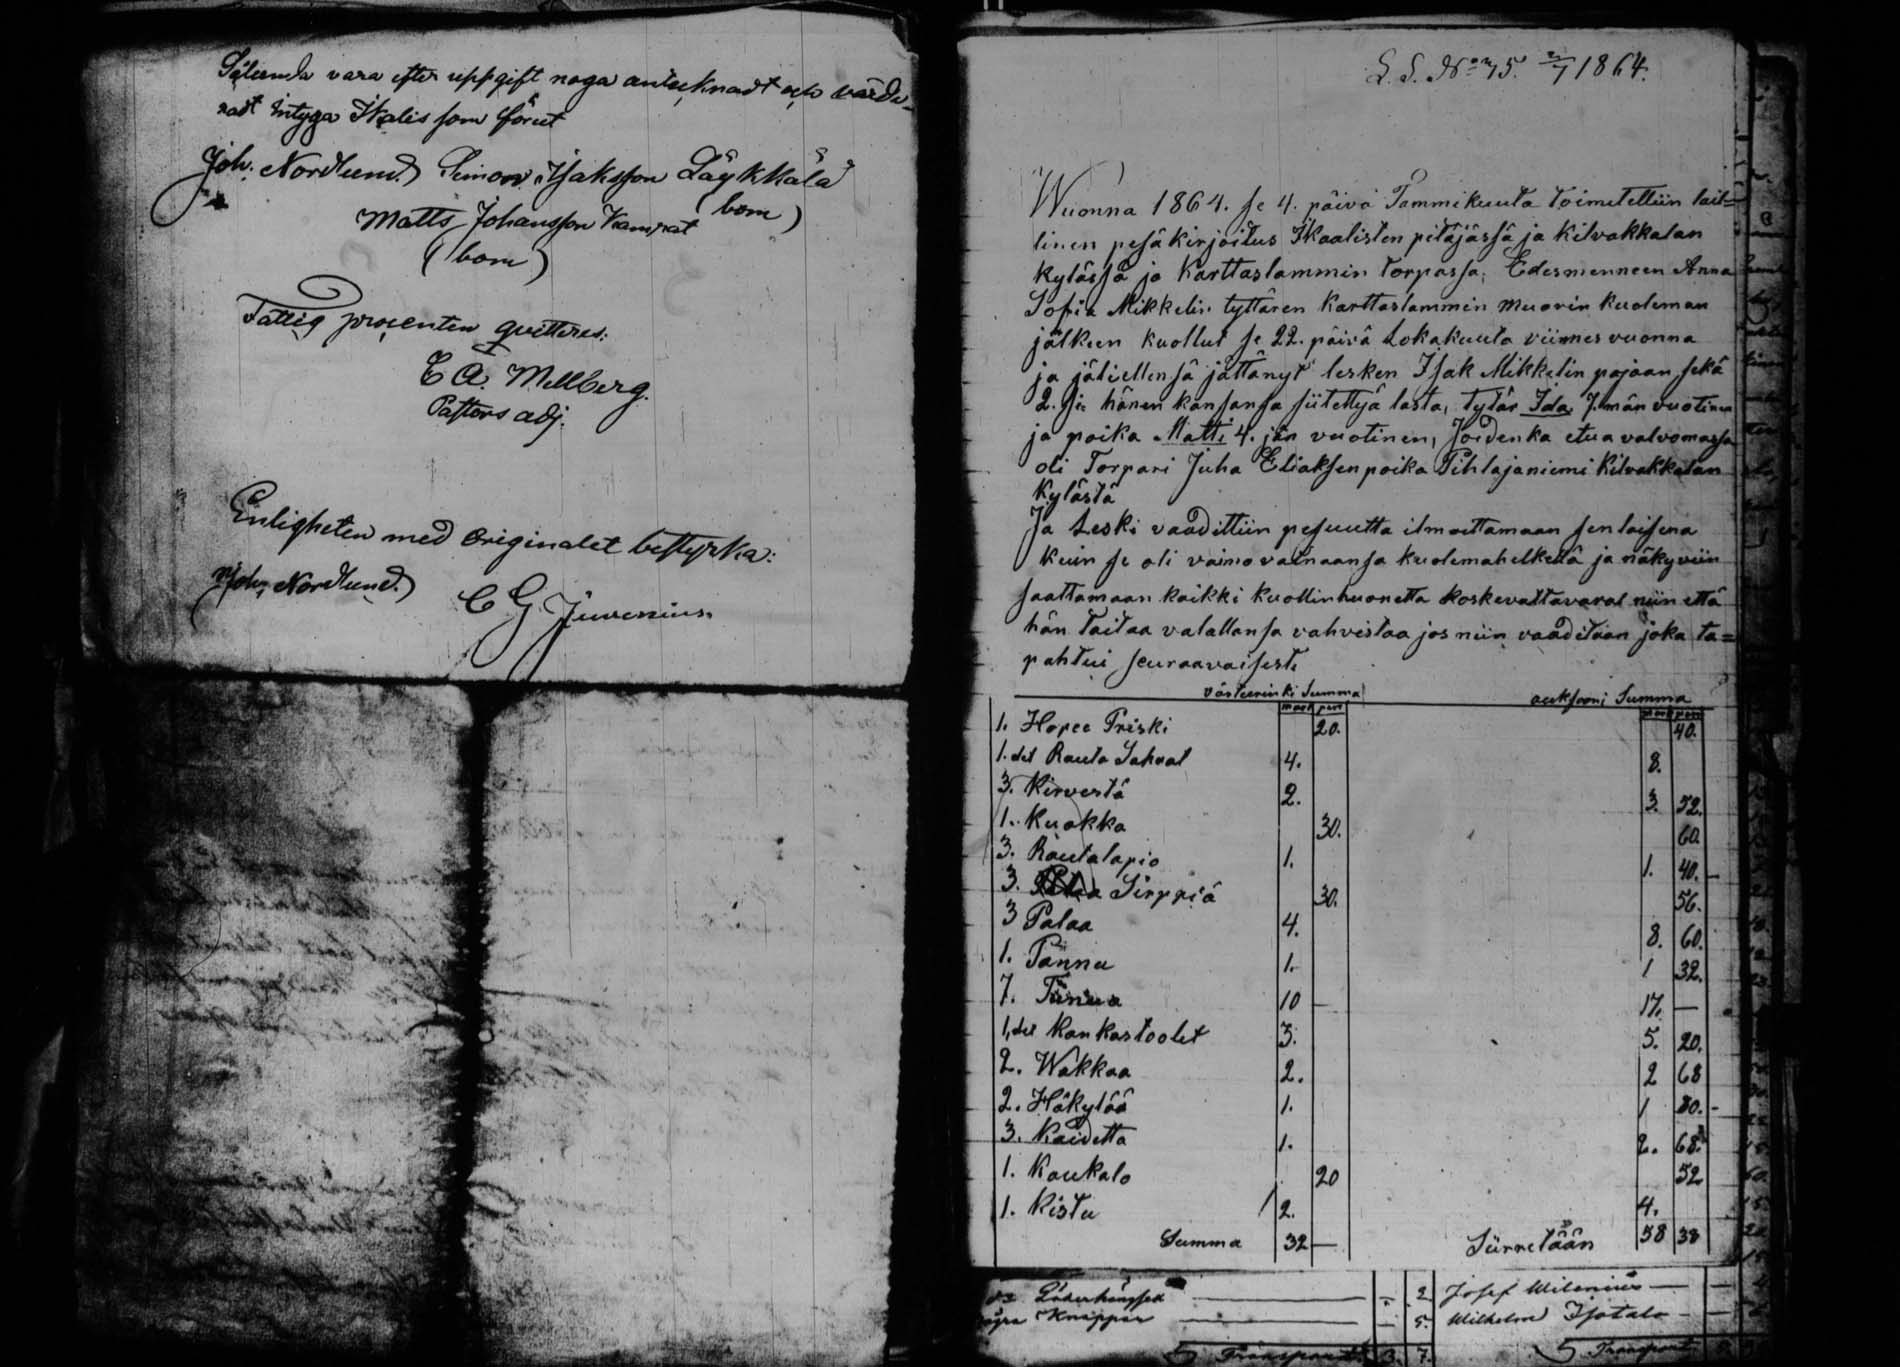 Sålunda vara efter uppgift noga antecknadt och värde-
radt intyga Ikalis som förut
Joh. Nordlund. Simon Isaksson Läykkälä
(bom)
Matts Johansson Kamrat
(bom)
Fattig procenten qvitteres:
E A. Mellberg.
Pastors adj.
Enligheten med Originalet bestyrka:
Joh. Nordlund. C G Juvenius.
L. S. No 75. 1864.
Wuonna 1864. se 4. päivä Tammikuuta toimitettiin lail=
linen pesäkirjoitus Ikaalisten pitäjässä ja Kilvakkalan
kylässä ja Karttaslammin torpassa, Edesmenneen Anna
Sofia Mikkelin tyttären Karttaslammin muorin kuoleman
jälkeen kuollut se 22. päivä Lokakuuta viimes vuonna
ja jäliellensä jättänyt lesken Isak Mikkelin pojaan sekä
2. si hänen kansansa siitettyä lasta, tytär Ida 7. män vuotinen
ja poika Matti 4. jän vuotinen, Joidenka etua valvomassa
oli Torpari Juha Eliaksenpoika Pihlajaniemi Kilvakkalan
kylästä
Ja Leski vaadittiin pesuutta ilmoittamaan senlaisena
kuin se oli vaimo vainaansa kuolemahetkellä ja näkyviin
saattamaan kaikki kuollinhuonetta koskevattavarat niin että
hän taitaa valallansa vahvistaa jos niin vaaditaan joka ta=
pahtui seuraavaisesti
värteerinki Summa auksooni Summa
mark pen mark pen
1. Hopee Priski 20. 40.
1. det Rauta Sahrat 4. 8.
3. Kirvestä 2. 3. 52.
1. Kuokka 30. 60.
3. Rautalapio 1. 1. 40.
3. Sirppiä 30. 56.
3 Pataa 4. 8. 60.
1. Pannu 1. 1 32.
7. Tiinua 10 — 17. —
1, det Kankastoolit 3. 5. 20.
2. Wakkaa 2. 2 68
2. Häkylää 1. 1 80.
3. Kaidetta 1. 2. 68.
1. Kaukalo 20 52
1. Kistu 2. 4.
Summa 32 — Siirretään 58 38
2 Josef Wilenius
Knappar 5. Wilhelm Isotalo
Transport 3. 7. Transport